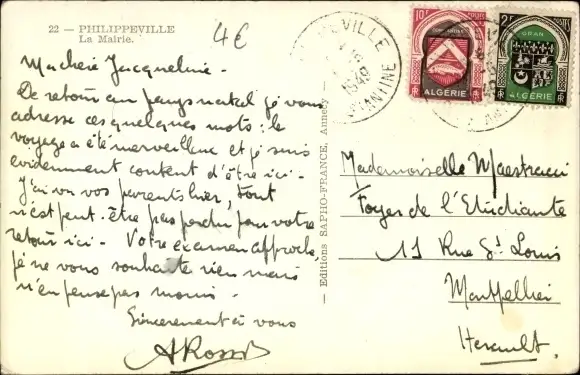 22 — PHILIPPEVILLE
La Mairie.
4€
Ma chère Jacqueline -
De retour au pays natal je vous
adresse ces quelques mots : le
voyage a été merveilleux et je suis
évidemment content d'être ici -
J'ai vu vos parents hier, tout
n'est peut-être pas perdu pour votre
retour ici - Votre examen approche,
je ne vous souhaite rien mais
n'en pense pas moins -
Sincèrement à vous
ARossi
— Editions SAPHO-FRANCE, Annecy —
PHILIPPEVILLE
1949
CONSTANTINE
10f
POSTES
BONE
ALGÉRIE
RF
2F
POSTES
ORAN
ALGÉRIE
RF
Mademoiselle Maestracci
Foyer de l'Etudiante
11 Rue St Louis
Montpellier
Herault.